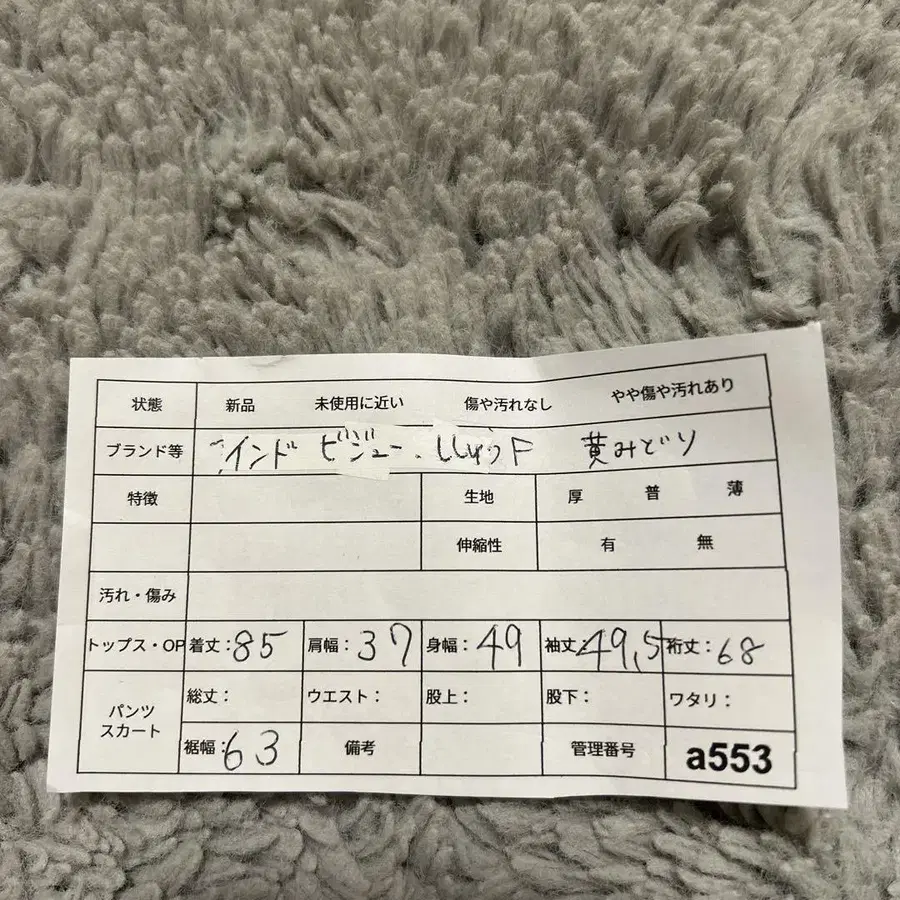 状態 新品 未使用に近い 傷や汚れなし やや傷や汚れあり
ブランド等 インド ビジュー ししゅうF 黄みどり
特徴 生地 厚 普 薄
伸縮性 有 無
汚れ・傷み
トップス・OP 着丈:85 肩幅:37 身幅:49 袖丈:49,5 裄丈:68
パンツ スカート 総丈: ウエスト: 股上: 股下: ワタリ:
裾幅:63 備考 管理番号 a553